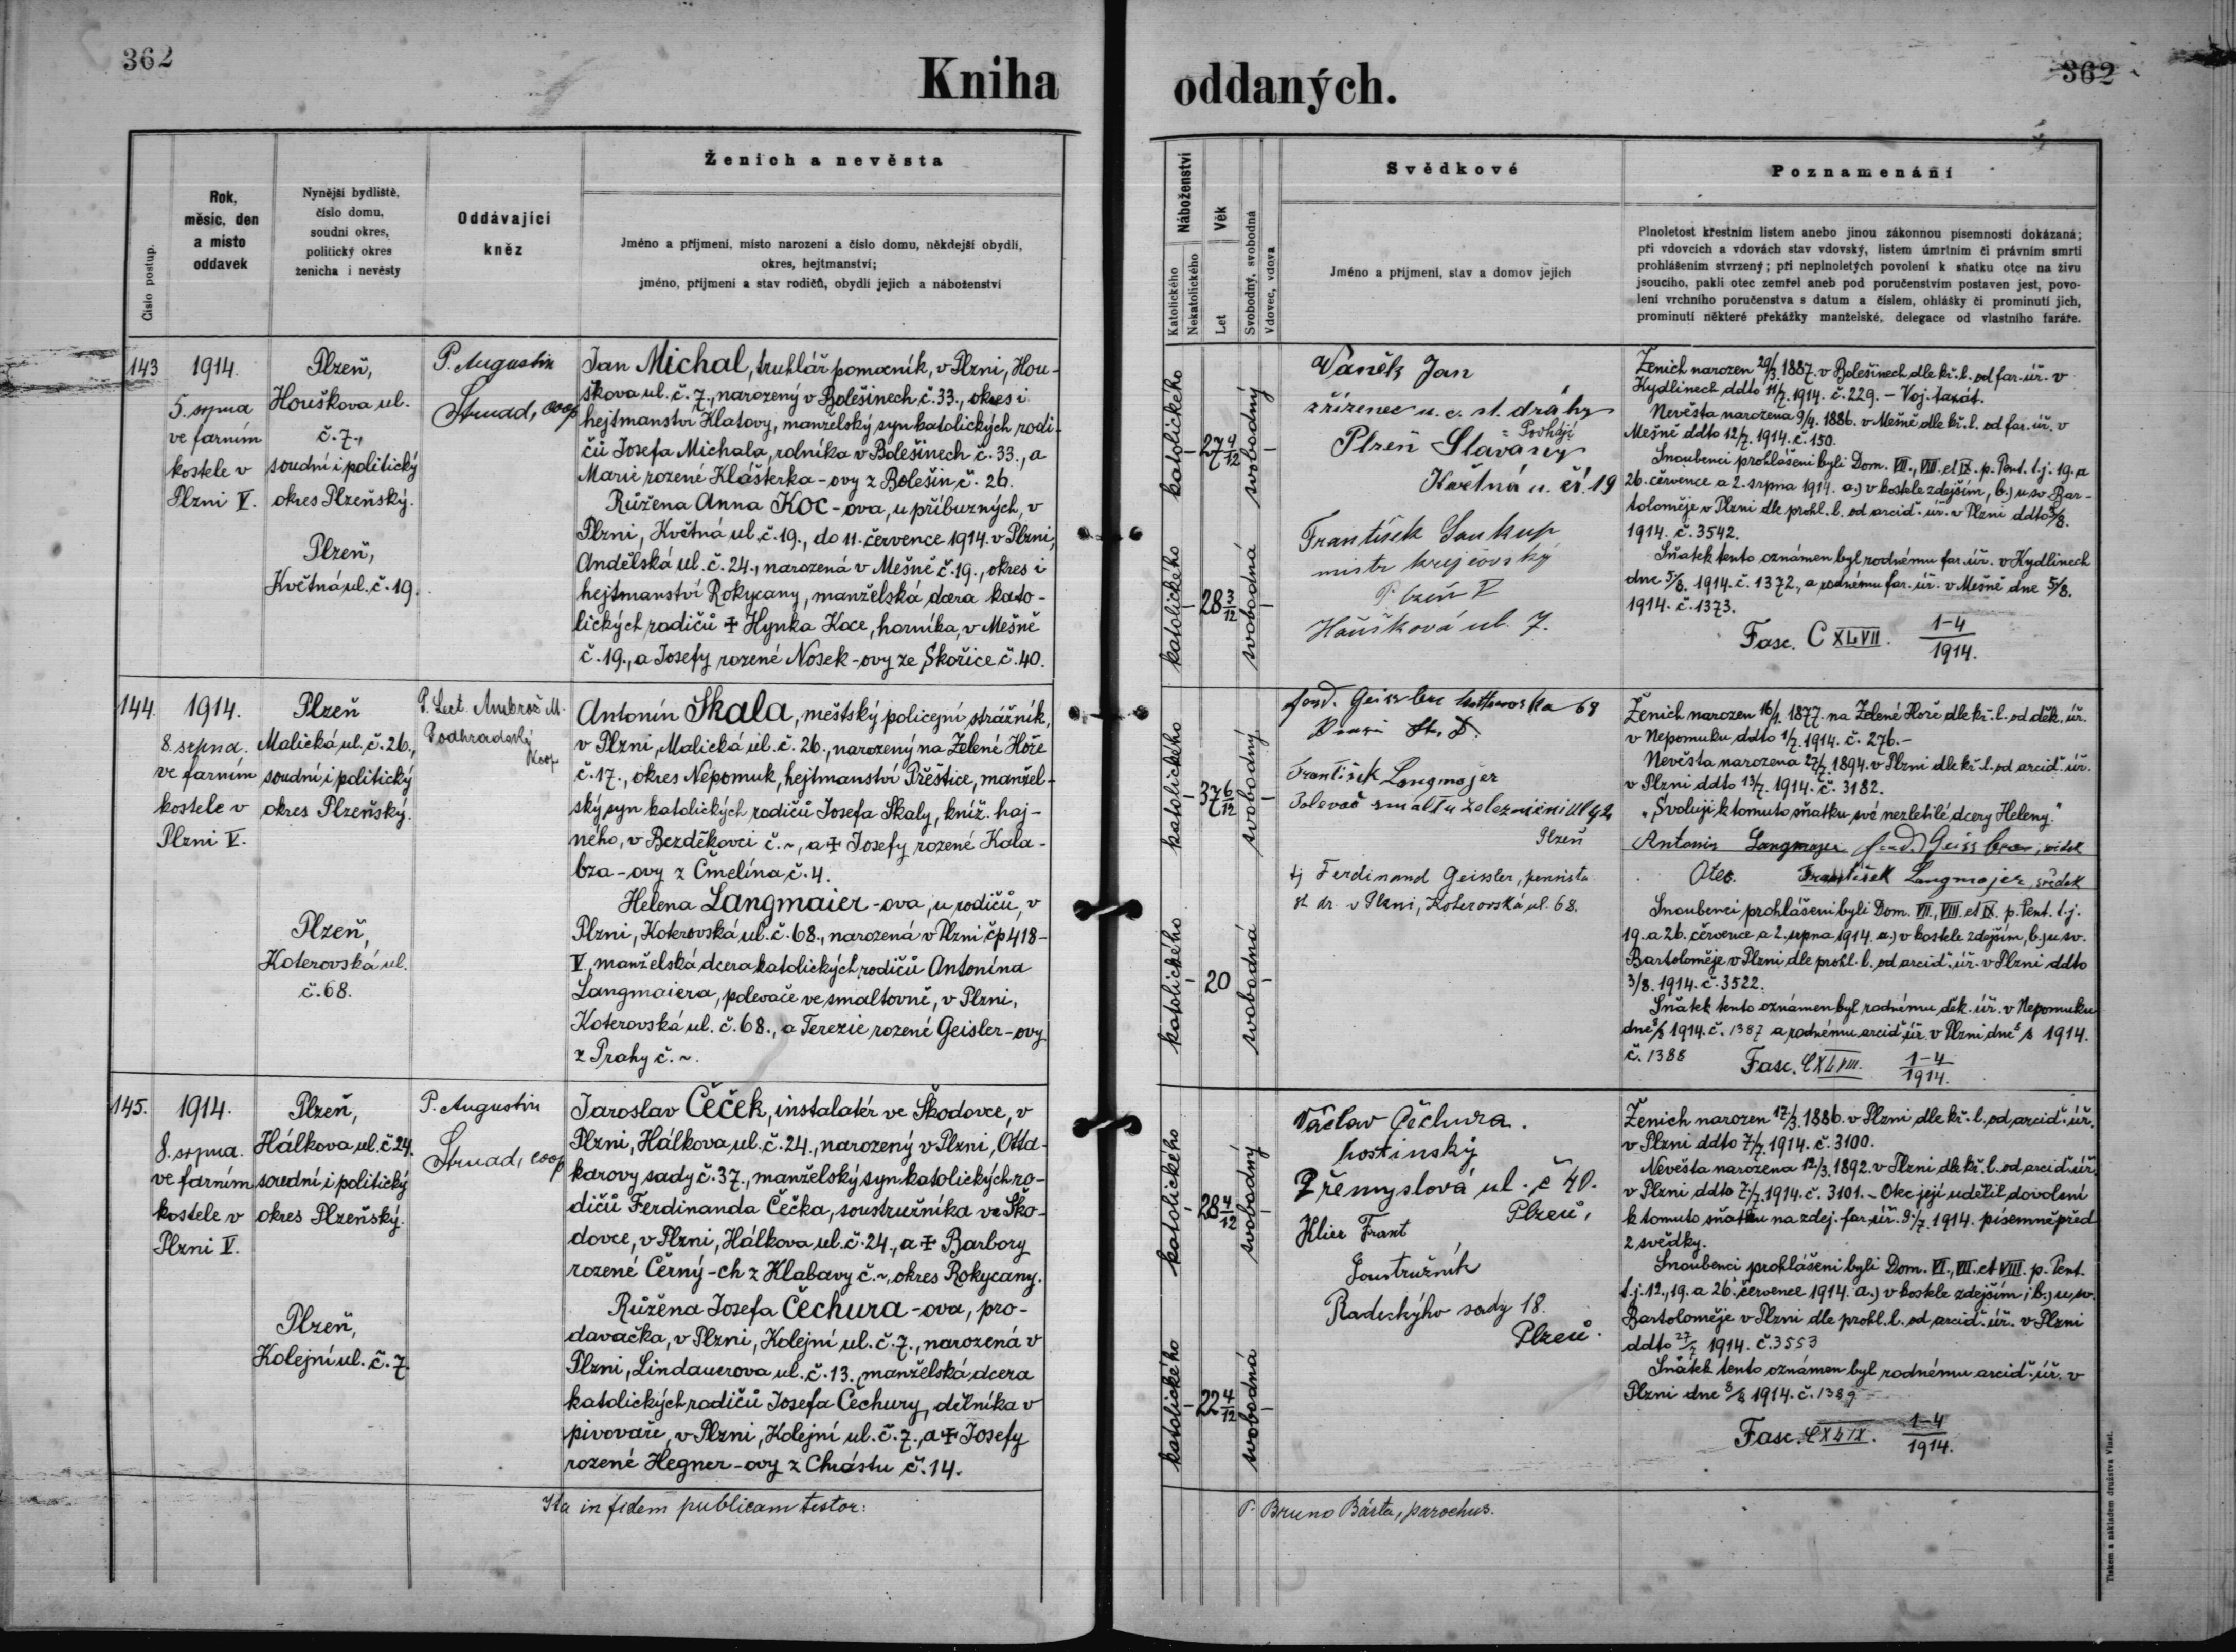 362
Kniha
oddaných.
362
Číslo postup.
Rok,
měsíc, den
a místo
oddavek
Nynější bydliště,
číslo domu,
soudní okres,
politický okres
ženicha i nevěsty
Oddávající
kněz
Ženich a nevěsta
Jméno a příjmení, místo narození a číslo domu, někdejší obydlí,
okres, hejtmanství;
jméno, příjmení a stav rodičů, obydlí jejich a náboženství
Náboženství
Katolického
Nekatolického
Věk
Let
Svobodný, svobodná
Vdovec, vdova
Svědkové
Jméno a příjmení, stav a domov jejich
Poznamenání
Plnoletost křestním listem anebo jinou zákonnou písemností dokázaná;
při vdovcích a vdovách stav vdovský, listem úmrtním či právním smrti
prohlášením stvrzený; při neplnoletých povolení k sňatku otce na živu
jsoucího, pakli otec zemřel aneb pod poručenstvím postaven jest, povo-
lení vrchního poručenstva s datum a číslem, ohlášky či prominutí jich,
prominutí některé překážky manželské, delegace od vlastního faráře.
143
1914.
5. srpna
ve farním
kostele v
Plzni V.
Plzeň,
Houškova ul.
č. 7.,
soudní i politický
okres Plzeňský.
Plzeň,
Květná ul. č. 19.
P. Augustin
Strnad, coop
Jan Michal, truhlář pomocník, v Plzni, Hou-
škova ul. č. 7., narozený v Bolešinech č. 33., okres i
hejtmanství Klatovy, manželský syn katolických rodi-
čů Josefa Michala, rolníka v Bolešinech č. 33., a
Marie rozené Klášterka-ovy z Bolešin č. 26.
Růžena Anna Koc-ova, u příbuzných, v
Plzni, Květná ul. č. 19., do 11. července 1914. v Plzni,
Andělská ul. č. 24., narozená v Mešně č. 19., okres i
hejtmanství Rokycany, manželská dcera kato-
lických rodičů ✝ Hynka Koce, horníka, v Mešně
č. 19., a Josefy rozené Nosek-ovy ze Skořice č. 40.
katolického
- 27 4/12 -
svobodný
katolického
- 28 3/12 -
svobodná
Vaněk Jan
zřízenec u. c. st. dráhy
Plzeň Slavany
Květná u. čí. 19
František Soukup
mistr krejčovský
Plzeň V
Houšková ul. 7.
Ženich narozen 29/3. 1887. v Bolešinech dle kř. l. od far. úř. v
Kydlinech ddto 11/7. 1914. č. 229. - Voj. taxát.
Nevěsta narozena 9/4. 1886. v Mešně dle kř. l. od far. úř. v
Mešně ddto 12/7. 1914. č. 150.
Snoubenci prohlášeni byli Dom. VII., VIII. et IX. p. Pent. t. j. 19. a
26. července a 2. srpna 1914. a.) v kostele zdejším, b.) u sv. Bar-
toloměje v Plzni dle prohl. l. od arcid. úř. v Plzni ddto 3/8.
1914. č. 3542.
Sňatek tento oznámen byl rodnému far. úř. v Kydlinech
dne 5/8. 1914. č. 1372., a rodnému far. úř. v Mešně dne 5/8.
1914. č. 1373.
Fasc. CXLVII. 1-4/1914.
144.
1914.
8. srpna.
ve farním
kostele v
Plzni V.
Plzeň
Malická ul. č. 26.,
soudní i politický
okres Plzeňský.
Plzeň,
Koterovská ul.
č. 68.
P. Lect. Ambrož M.
Podhradský
Koop.
Antonín Skala, městský policejní strážník,
v Plzni, Malická ul. č. 26., narozený na Zelené Hoře
č. 17., okres Nepomuk, hejtmanství Přeštice, manžel-
ský syn katolických rodičů Josefa Skaly, kníž. haj-
ného, v Bezděkovci č. ~, a ✝ Josefy rozené Kala-
bza-ovy z Čmelína č. 4.
Helena Langmaier-ova, u rodičů, v
Plzni, Koterovská ul. č. 68., narozená v Plzni čp 418-
V., manželská dcera katolických rodičů Antonína
Langmaiera, polevače ve smaltovně, v Plzni,
Koterovská ul. č. 68., a Terezie rozené Geisler-ovy
z Prahy č. ~.
katolického
- 37 6/12 -
svobodný
katolického
- 20 -
svobodná
Ferd. Geissler 68
František Langmajer
Polevač smaltu železniční ul 42
Plzeň
tj Ferdinand Geissler, pensista
st. dr. v Plzni, Koterovská ul. 68.
Ženich narozen 16/1. 1877. na Zelené Hoře dle kř. l. od děk. úř.
v Nepomuku ddto 1/7. 1914. č. 276.-
Nevěsta narozena 27/7. 1894. v Plzni dle kř. l. od arcid. úř.
v Plzni ddto 13/7. 1914. č. 3182.
„Svoluji k tomuto sňatku své nezletilé dcery Heleny."
Antonín Langmajer Ferd. Geissler, svědek
Otec. František Langmajer, svědek
Snoubenci prohlášeni byli Dom. VII., VIII. et IX. p. Pent. t. j.
19. a 26. července a 2. srpna 1914. a.) v kostele zdejším, b.) u sv.
Bartoloměje v Plzni dle prohl. l. od arcid. úř. v Plzni ddto
3/8. 1914. č. 3522.
Sňatek tento oznámen byl rodnému děk. úř. v Nepomuku
dne 8/8 1914. č. 1387 a rodnému arcid. úř. v Plzni dne 8/8 1914.
č. 1388
Fasc. CXLVIII. 1-4/1914.
145.
1914.
8. srpna.
ve farním
kostele v
Plzni V.
Plzeň,
Hálkova ul. č. 24.
soudní i politický
okres Plzeňský.
Plzeň,
Kolejní ul. č. 7.
P. Augustin
Strnad, coop
Jaroslav Čeček, instalatér ve Škodovce, v
Plzni, Hálkova ul. č. 24., narozený v Plzni, Otta-
karovy sady č. 37., manželský syn katolických ro-
dičů Ferdinanda Čečka, soustružníka ve Ško-
dovce, v Plzni, Hálkova ul. č. 24., a ✝ Barbory
rozené Černý-ch z Klabavy č. ~, okres Rokycany.
Růžena Josefa Čechura-ova, pro-
davačka, v Plzni, Kolejní ul. č. 7., narozená v
Plzni, Lindauerova ul. č. 13., manželská dcera
katolických rodičů Josefa Čechury, dělníka v
pivovaře, v Plzni, Kolejní ul. č. 7., a ✝ Josefy
rozené Hegner-ovy z Chrástu č. 14.
katolického
- 28 4/12 -
svobodný
katolického
- 22 4/12 -
svobodná
Václav Čechura.
hostinský
Přemyslová ul. č 40.
Plzeň,
Klier Frant
Soustružník
Radeckýho sady 18.
Plzeň.
Ženich narozen 17/3. 1886. v Plzni dle kř. l. od arcid. úř.
v Plzni ddto 7/7. 1914. č. 3100.
Nevěsta narozena 12/3. 1892. v Plzni dle kř. l. od arcid. úř.
v Plzni ddto 7/7. 1914. č. 3101. - Otec její udělil dovolení
k tomuto sňatku na zdej. far. úř. 9./7. 1914. písemně před
2 svědky.
Snoubenci prohlášeni byli Dom. VI., VII. et VIII. p. Pent.
t. j. 12., 19. a 26. července 1914. a.) v kostele zdejším; b.) u sv.
Bartoloměje v Plzni dle prohl. l. od arcid. úř. v Plzni
ddto 27/7 1914. č. 3553
Sňatek tento oznámen byl rodnému arcid. úř. v
Plzni dne 8/8 1914. č. 1389.-
Fasc. CXLIX. 1-4/1914.
Ita in fidem publicam testor:
P. Bruno Bárta, parochus.
Tiskem a nákladem družstva Vlast.